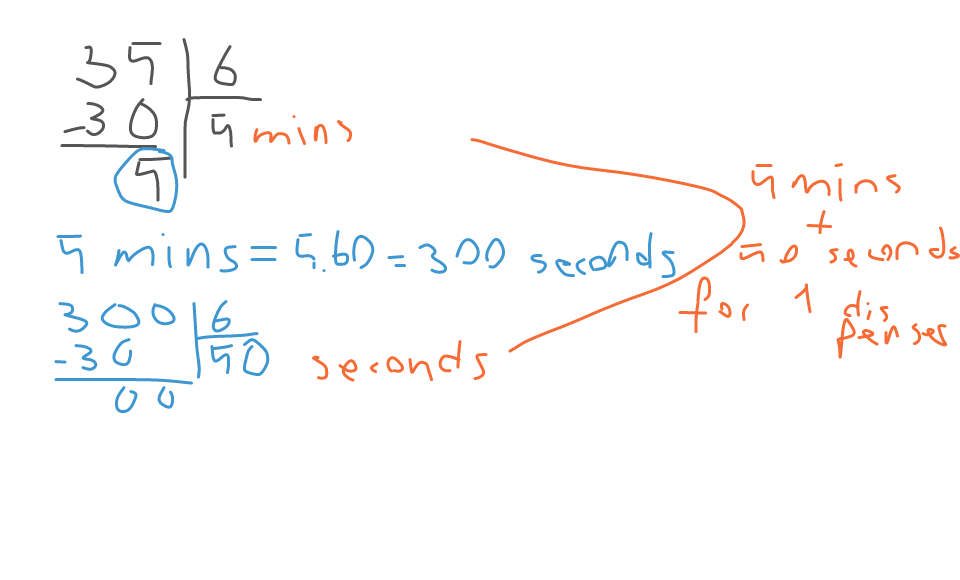 35 6
-30 5 mins
5
5 mins = 5.60 = 300 seconds
300 6
-30 50 seconds
00
5 mins
+
50 seconds
for 1 dis
penses